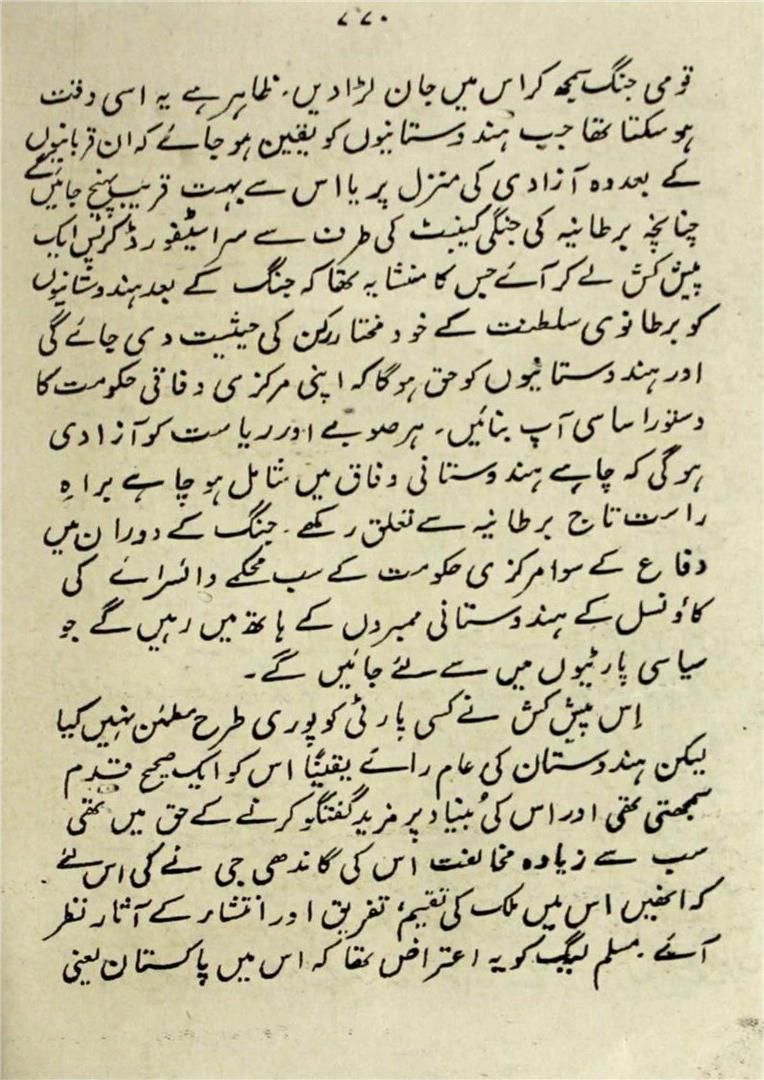 ۷۷۰
قومی جنگ سمجھ کر اس میں جان لڑا دیں۔ ظاہر ہے یہ اسی وقت
ہو سکتا تھا جب ہندوستانیوں کو یقین ہو جائے کہ ان قربانیوں
کے بعد وہ آزادی کی منزل پر یا اس سے بہت قریب پہنچ جائیں گے
چنانچہ برطانیہ کی جنگی کیبنٹ کی طرف سے سر اسٹیفورڈ کرپس ایک
پیش کش لے کر آئے جس کا منشا یہ تھا کہ جنگ کے بعد ہندوستانیوں
کو برطانوی سلطنت کے خود مختار رکن کی حیثیت دی جائے گی
اور ہندوستانیوں کو حق ہوگا کہ اپنی مرکزی وفاقی حکومت کا
دستور اساسی آپ بنائیں۔ ہر صوبے اور ریاست کو آزادی
ہوگی کہ چاہے ہندوستانی وفاق میں شامل ہو چاہے براہِ
راست تاج برطانیہ سے تعلق رکھے۔ جنگ کے دوران میں
دفاع کے سوا مرکزی حکومت کے سب محکمے وائسرائے کی
کاؤنسل کے ہندوستانی ممبروں کے ہاتھ میں رہیں گے جو
سیاسی پارٹیوں میں سے لئے جائیں گے۔
اِس پیش کش نے کسی پارٹی کو پوری طرح مطمئن نہیں کیا
لیکن ہندوستان کی عام رائے یقیناً اس کو ایک صحیح قدم
سمجھتی تھی اور اس کی بُنیاد پر مزید گفتگو کرنے کے حق میں تھی
سب سے زیادہ مخالفت اس کی گاندھی جی نے کی اس لئے
کہ انھیں اس میں ملک کی تقسیم، تفریق اور انتشار کے آثار نظر
آئے۔ مسلم لیگ کو یہ اعتراض تھا کہ اس میں پاکستان یعنی